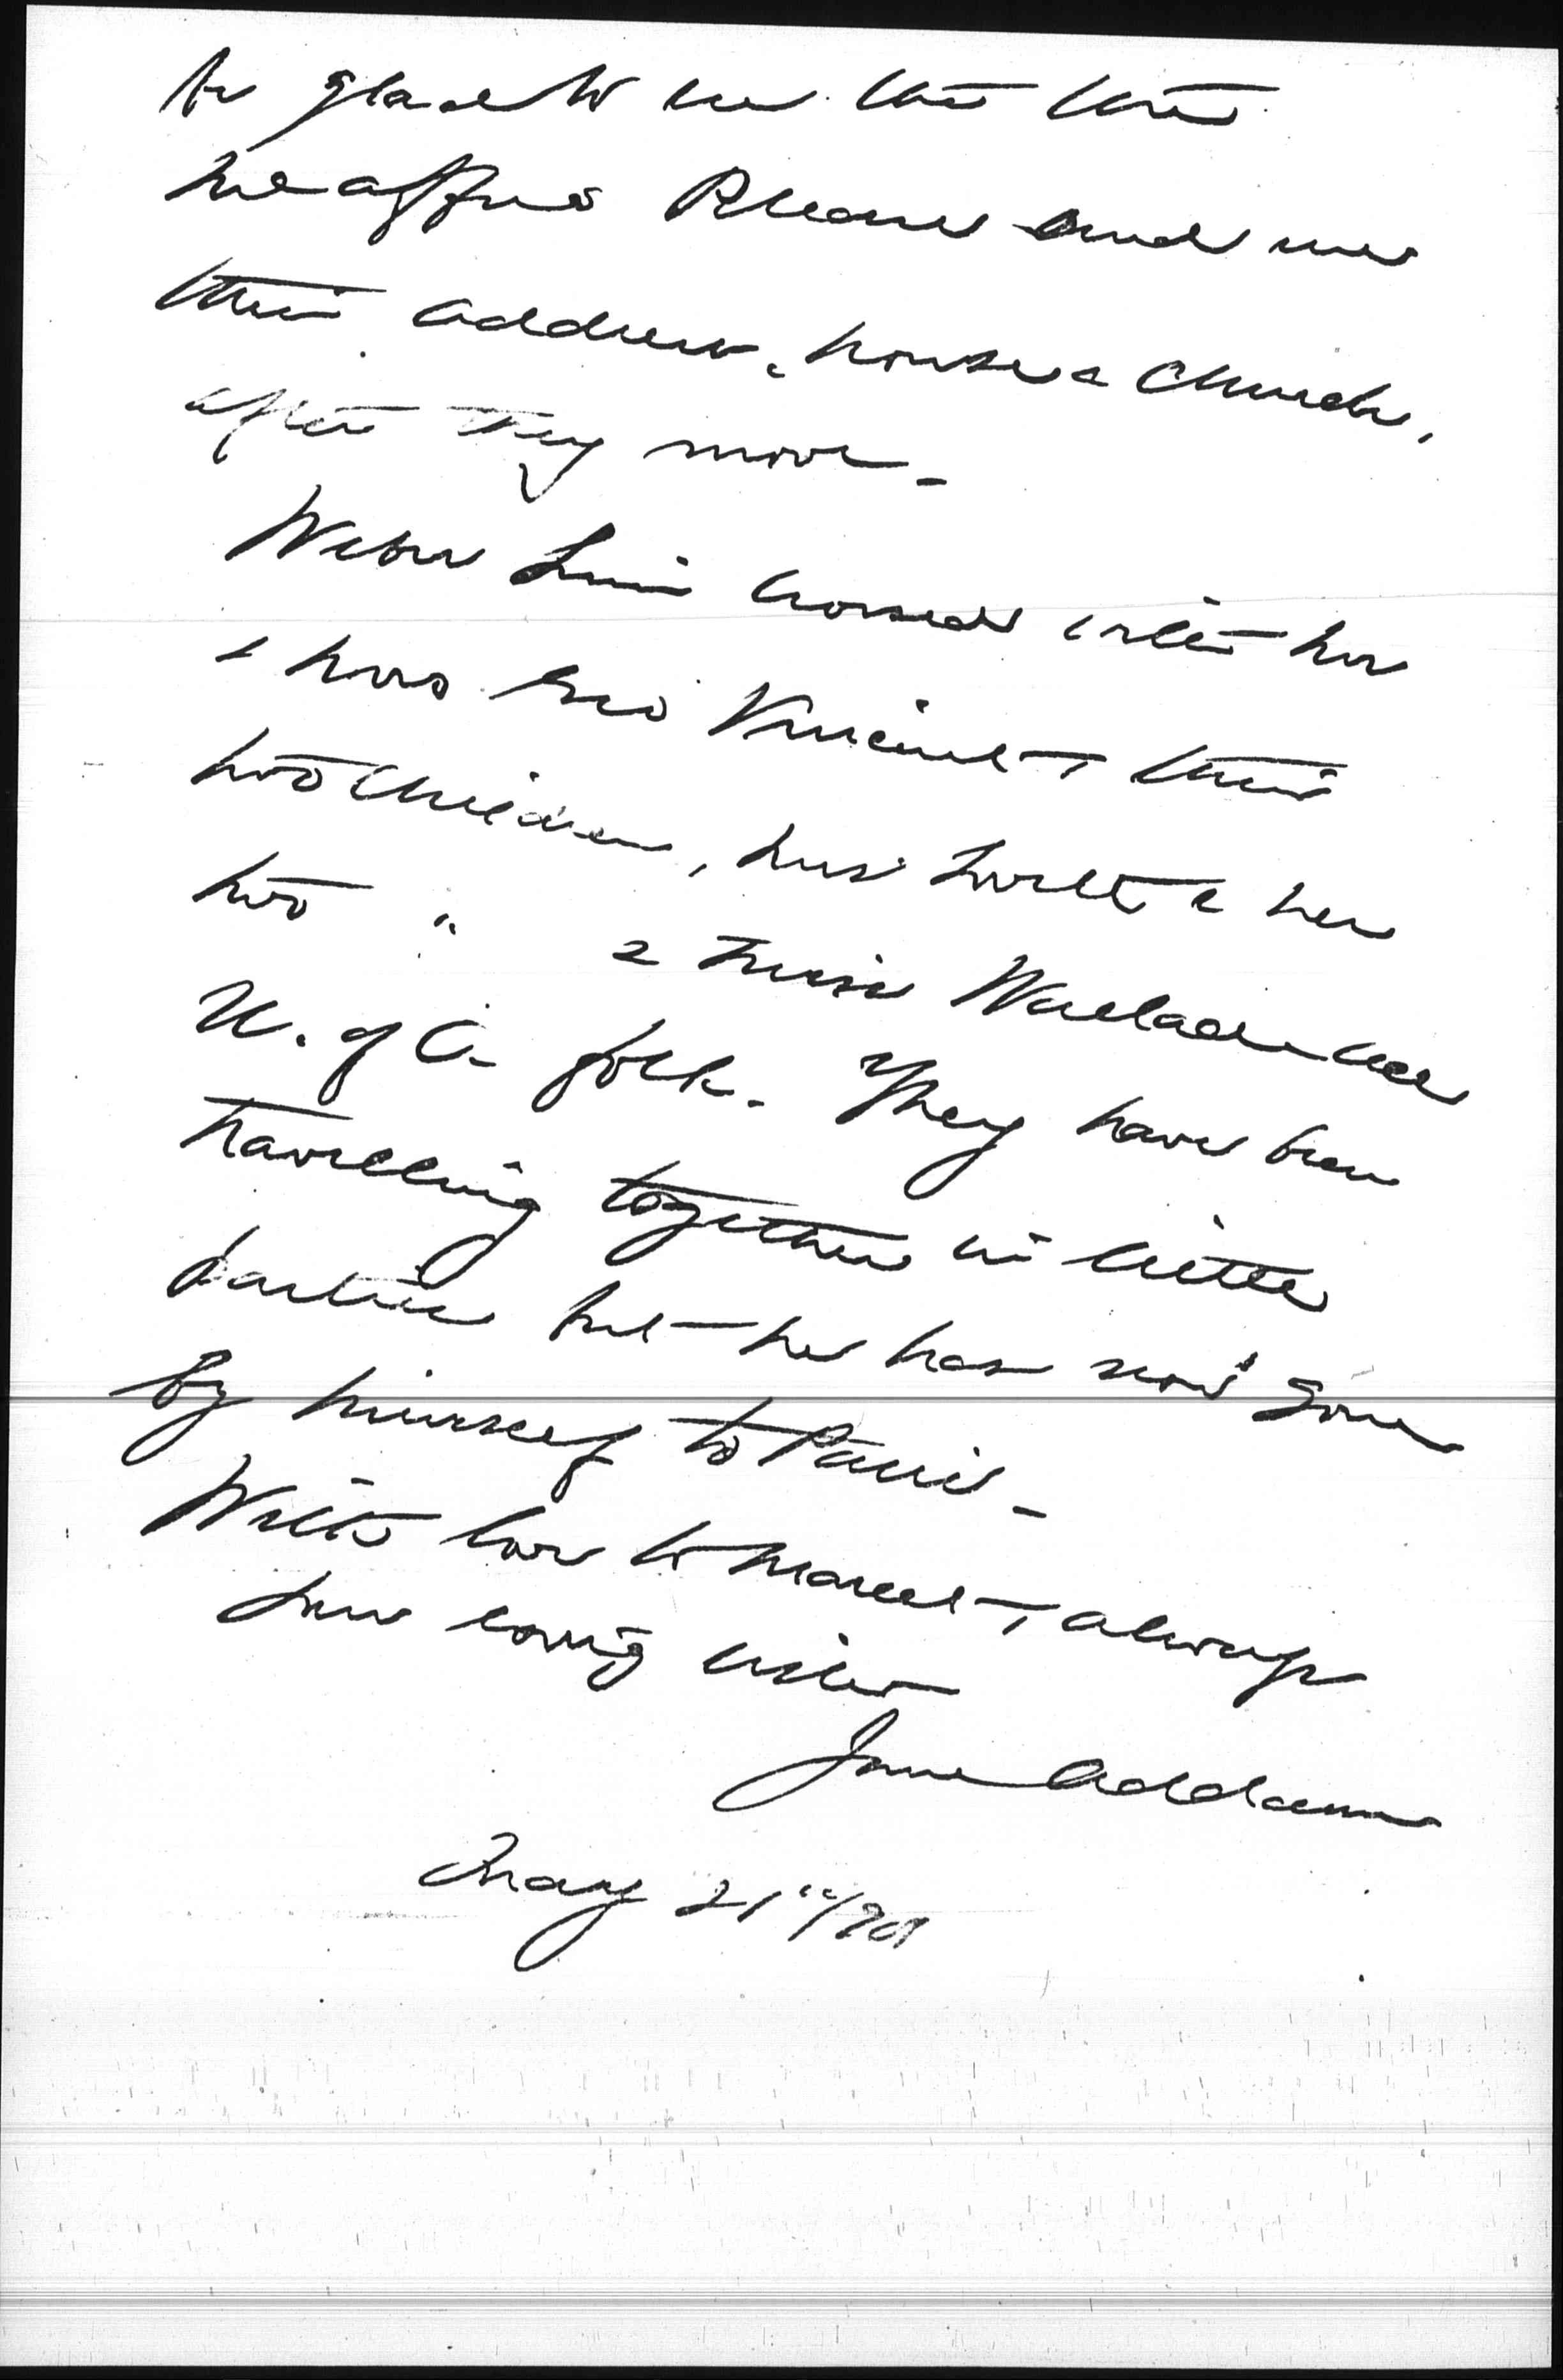 be glad to see the the
me after Please send me
their address, house & church,
after they move –
Weber Linn crossed with her
& Mrs Geo Vincent & their
two children, Mrs & her
two " & Miss Wallace all
U. of C. folk. They have been
travelling together in little
parties but he has now gone
by himself to Paris –
With love to Marcet & always
Your loving sister
Jane Addams
May 21"/